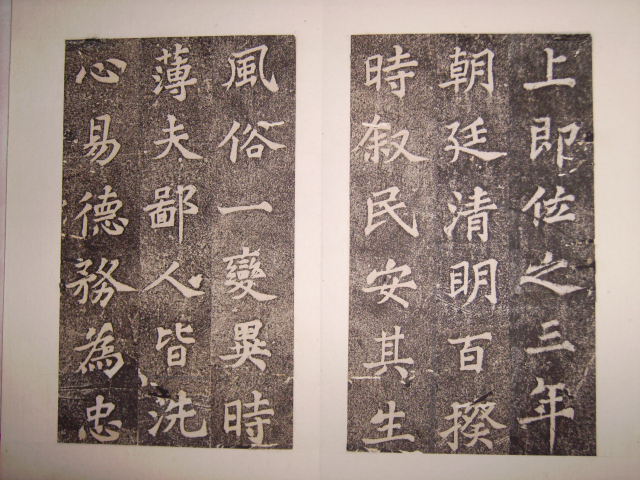 上即位之三年
朝廷清明百揆
時叙民安其生
風俗一變異時
薄夫鄙人皆洗
心易德務為忠